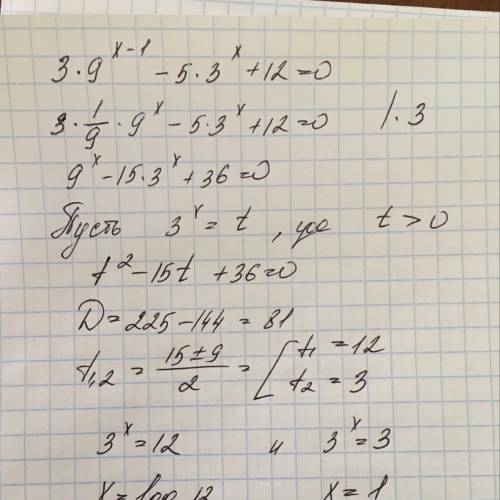 3·9^(x-1) - 5·3^x + 12 = 0
3·1/9·9^x - 5·3^x + 12 = 0 /·3
9^x - 15·3^x + 36 = 0
Пусть 3^x = t, где t > 0
t^2 - 15t + 36 = 0
D = 225 - 144 = 81
t1,2 = (15 ± 9)/2 = [ t1 = 12
t2 = 3
3^x = 12 и 3^x = 3
x = log 12 x = 1